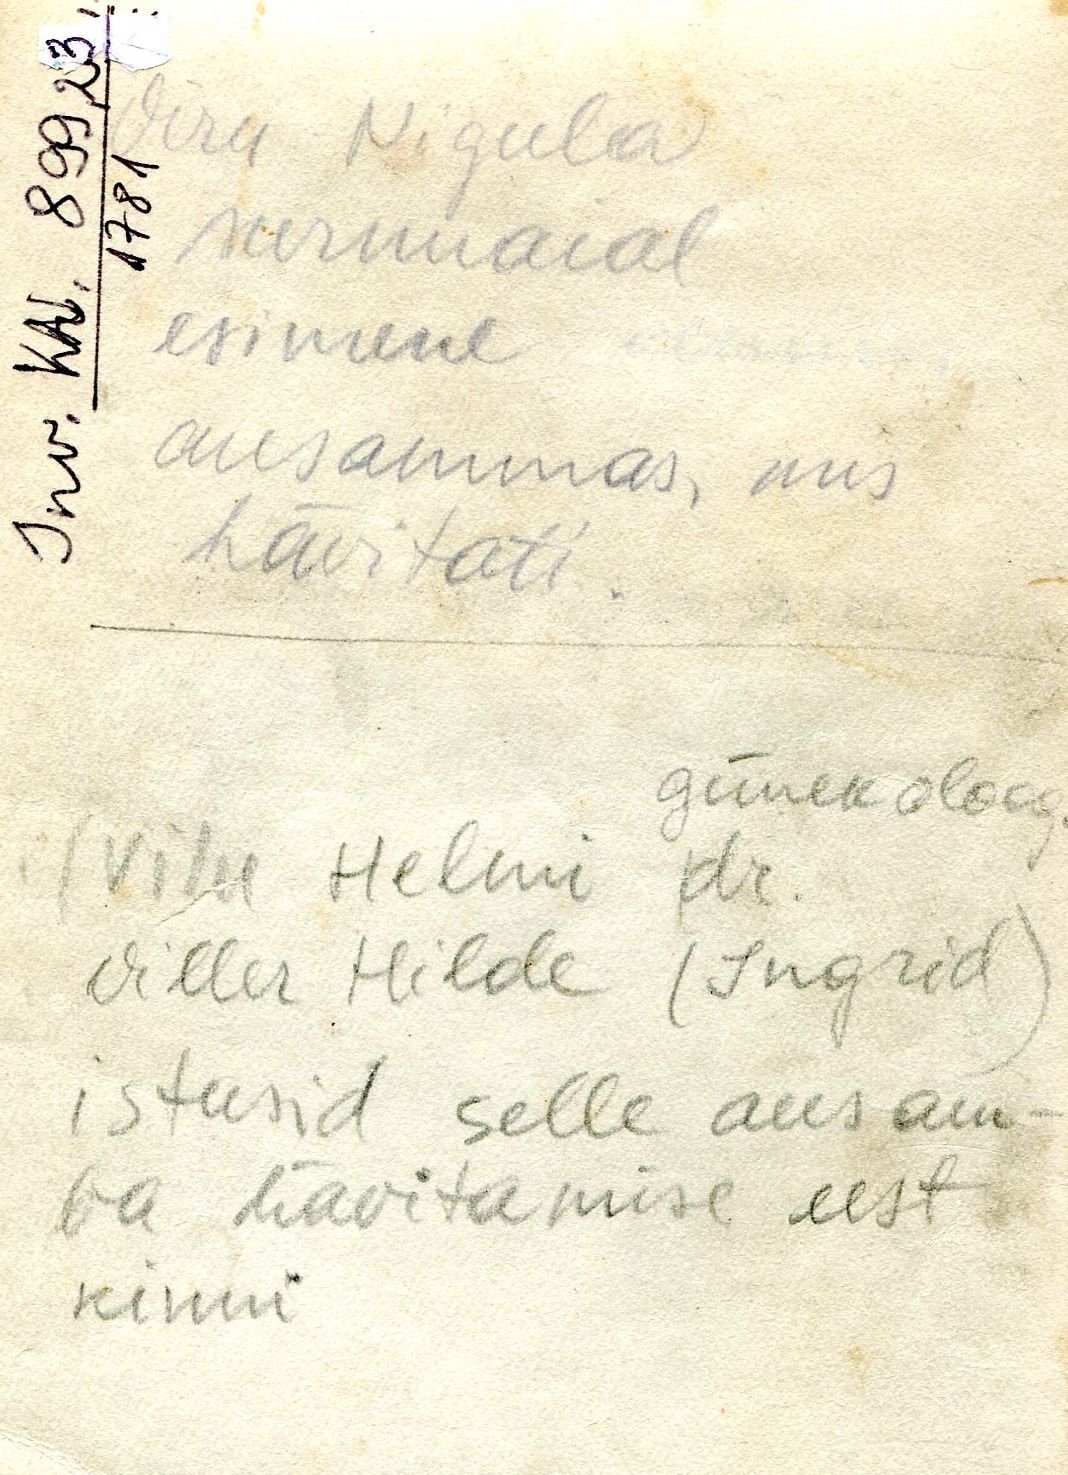 Inv. KN. 899,23,
1781
Viru Nigula
surnuaial
esimene
ausammas, mis
hävitati.
günekoloog.
Helmi dr.
Viller Hilde (Ingrid)
istusid selle ausam-
ba hävitamise eest
kinni